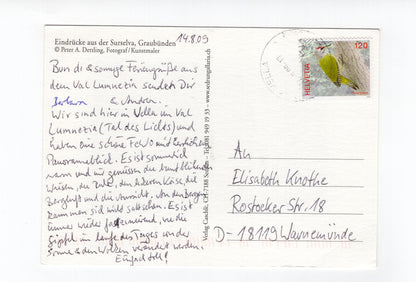 Eindrücke aus der Surselva, Graubünden
© Peter A. Dettling, Fotograf/Kunstmaler
14.8.09
Bun di & sonnige Feriengrüße aus
dem Val Lumnezia sendet Dir
Barbara & Andrea.
Wir sind hier in Vella im Val
Lumnezia (Tal des Lichts) und
haben eine schöne FeWo mit herrlichem
Panoramablick. Es ist sommerlich
warm und wir genießen die bunt blühenden
Wiesen, die Ruhe, den leckeren Käse, die
Bergluft und die Aussicht. An den Bergen
kann man sich nicht sattsehen. Es ist
immer wieder faszinierend, wie die
Gipfel im Laufe des Tages von der
Sonne & den Wolken verändert werden.
Einfach toll!
Verlag Casclih, CH-7188 Sedrun, Tel. 081 949 19 33 – www.sedrungalleria.ch
VELLA
HELVETIA
120
An
Elisabeth Knothe
Rostocker Str. 18
D-18119 Warnemünde